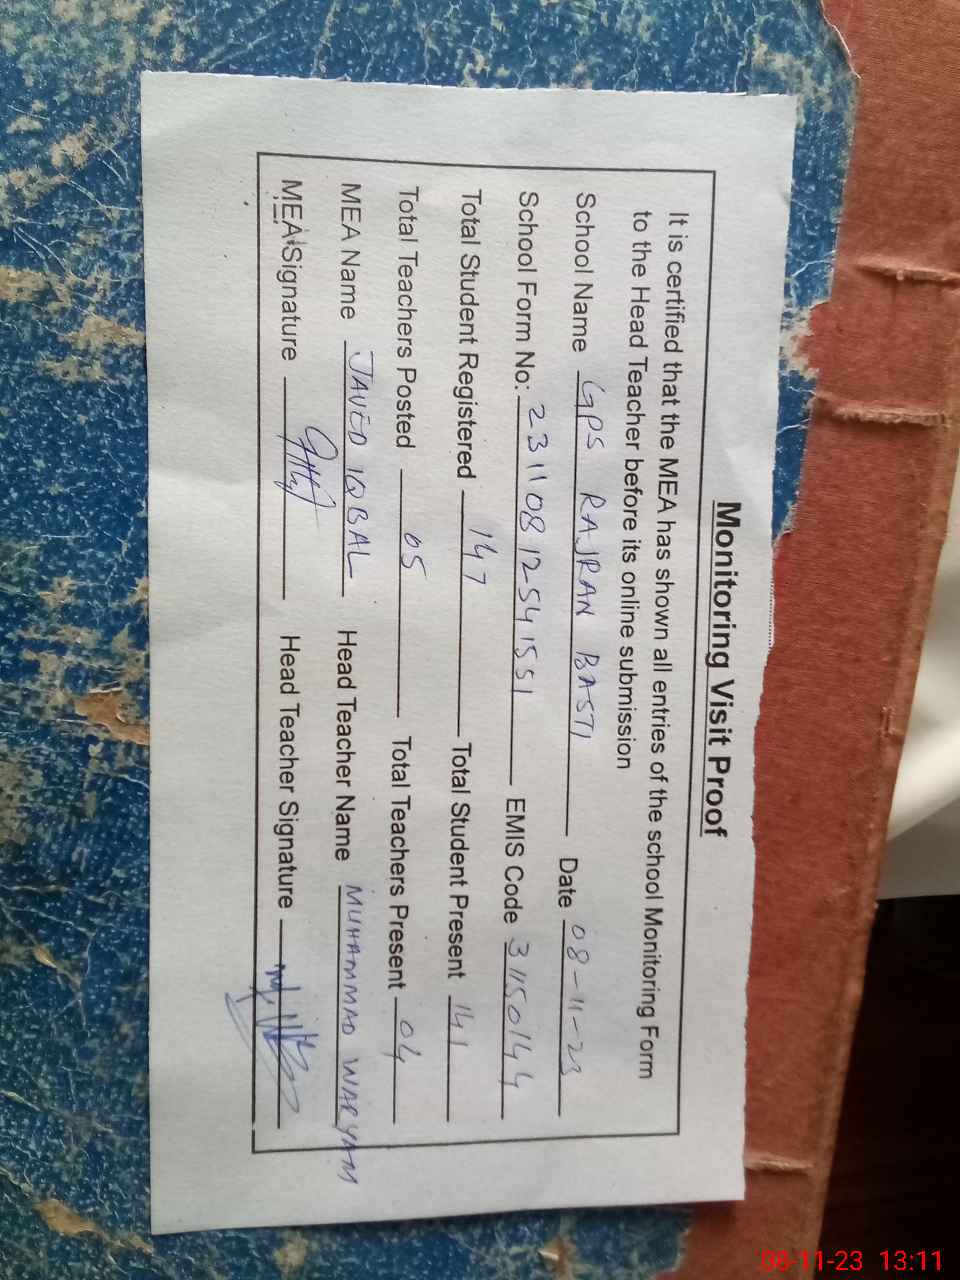 Monitoring Visit Proof
It is certified that the MEA has shown all entries of the school Monitoring Form
to the Head Teacher before its online submission
School Name GPS RAJRAN BASTI Date 08-11-23
School Form No: 23110812541551 EMIS Code 31150144
Total Student Registered 147 Total Student Present 141
Total Teachers Posted 05 Total Teachers Present 04
MEA Name JAVED IQBAL Head Teacher Name MUHAMMAD WARYAM
MEA Signature Head Teacher Signature
08-11-23 13:11